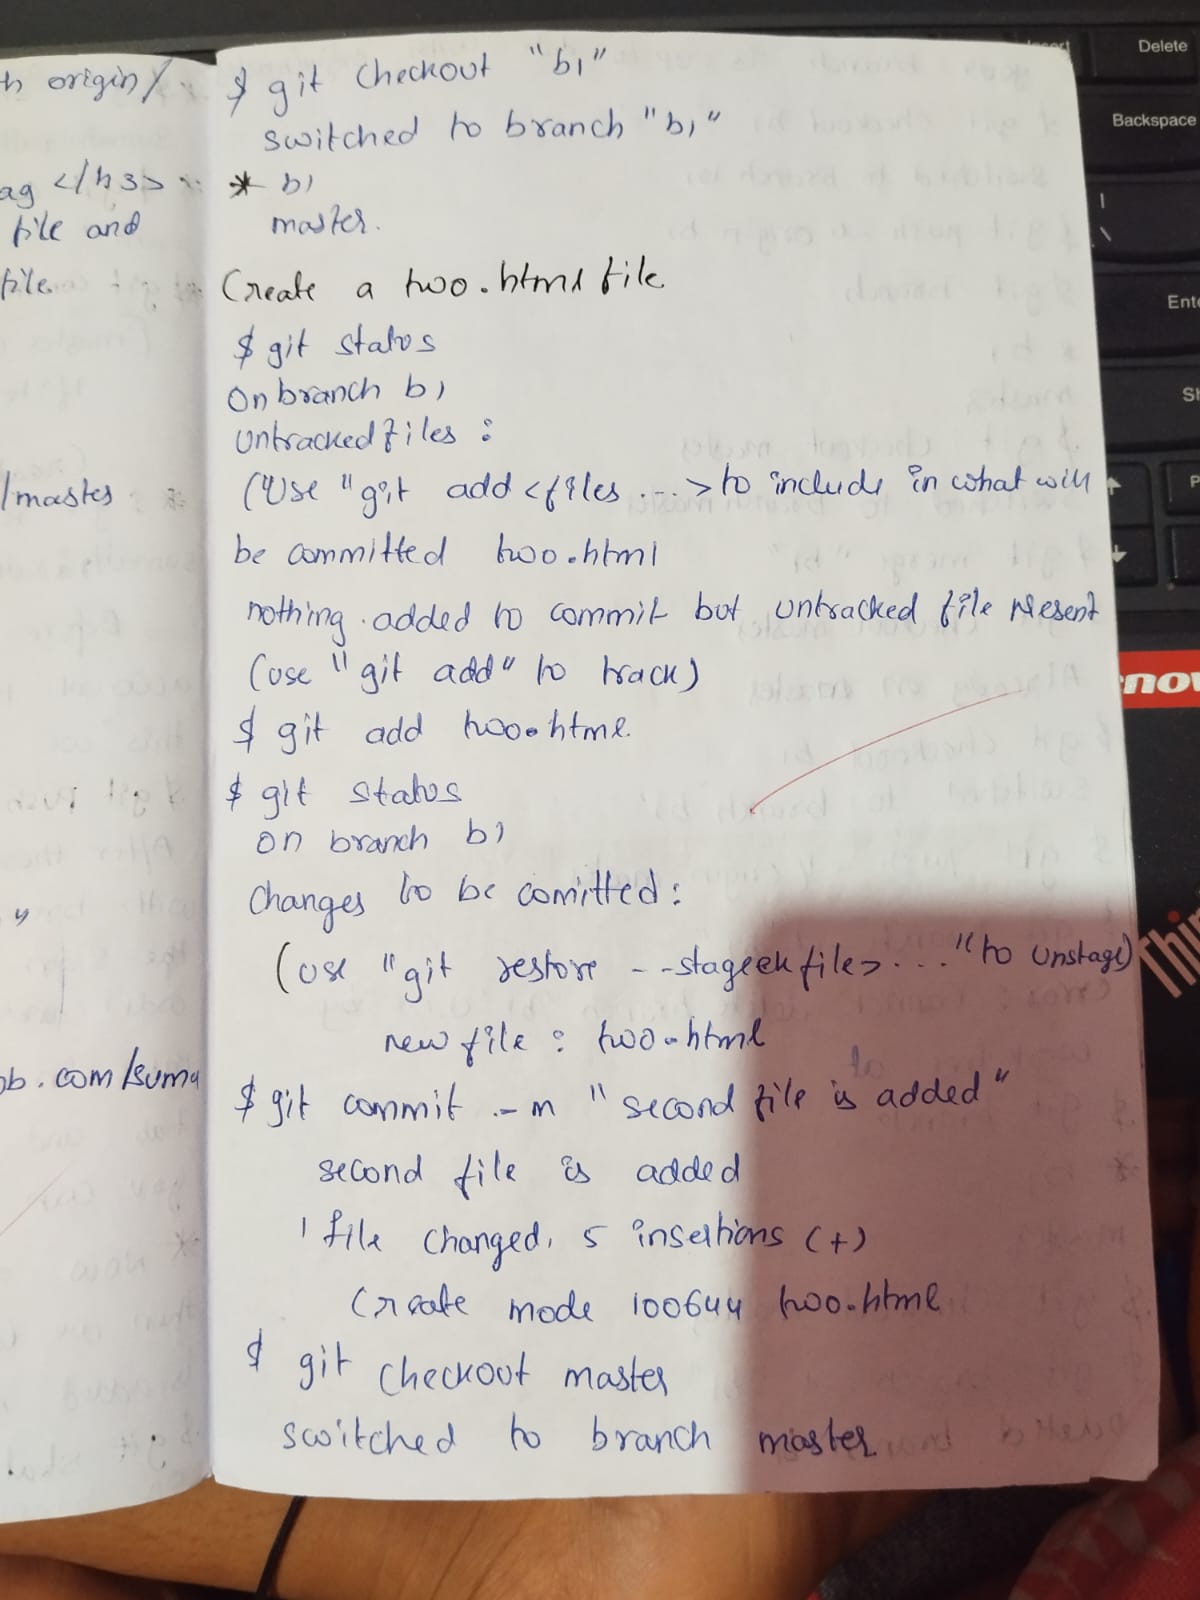 th origin/
ag </h3>
file and
file.
/master
"
ob.com/suma
$ git checkout "b1"
switched to branch "b1"
* b1
master.
Create a two.html file
$ git status
On branch b1
untracked files :
("Use "git add <files ...> to include in what will
be committed two.html
nothing added to commit but untracked file present
(use "git add" to track)
$ git add two.html.
$ git status
on branch b1
changes to be comitted :
(use "git restore --stageek file> ... " to unstage)
new file : two.html
$ git commit -m "second file is added"
second file is added
1 file changed, 5 insertions (+)
Create mode 100644 two.html
$ git checkout master
switched to branch master
Delete
Backspace
Ente
Sh
P
nov
Thin